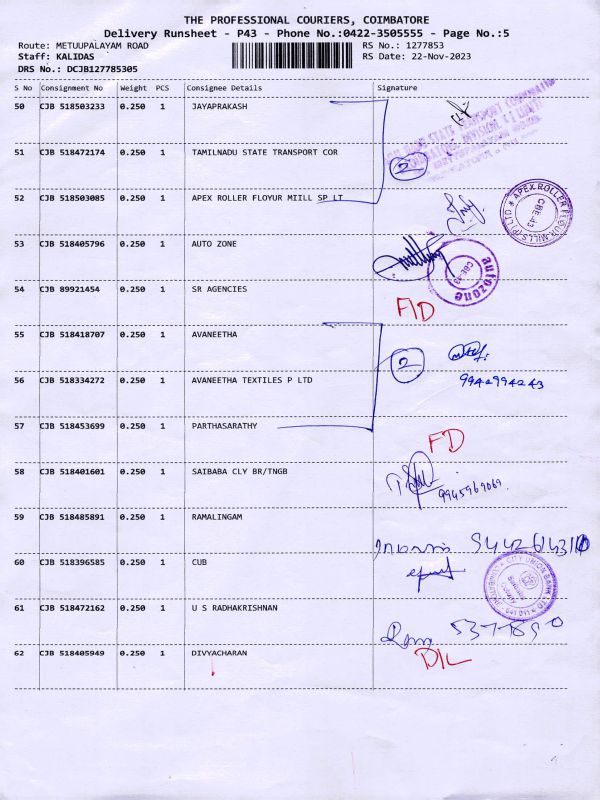 THE PROFESSIONAL COURIERS, COIMBATORE
Delivery Runsheet - P43 - Phone No.:0422-3505555 - Page No.:5
Route: METUUPALAYAM ROAD RS No.: 1277853
Staff: KALIDAS RS Date: 22-Nov-2023
DRS No.: DCJB127785305
S No Consignment No Weight PCS Consignee Details Signature
50 CJB 518503233 0.250 1 JAYAPRAKASH
51 CJB 518472174 0.250 1 TAMILNADU STATE TRANSPORT COR
2
52 CJB 518503085 0.250 1 APEX ROLLER FLOYUR MIILL SP LT
APEX ROLLER FLOUR MILLS (P) LTD CBE-43
53 CJB 518405796 0.250 1 AUTO ZONE
autozone CBE-43
54 CJB 89921454 0.250 1 SR AGENCIES
55 CJB 518418707 0.250 1 AVANEETHA
2
56 CJB 518334272 0.250 1 AVANEETHA TEXTILES P LTD
57 CJB 518453699 0.250 1 PARTHASARATHY
FD
58 CJB 518401601 0.250 1 SAIBABA CLY BR/TNGB
9945969069
59 CJB 518485891 0.250 1 RAMALINGAM
60 CJB 518396585 0.250 1 CUB
CITY UNION BANK LTD
61 CJB 518472162 0.250 1 U S RADHAKRISHNAN
62 CJB 518405949 0.250 1 DIVYACHARAN
D/L